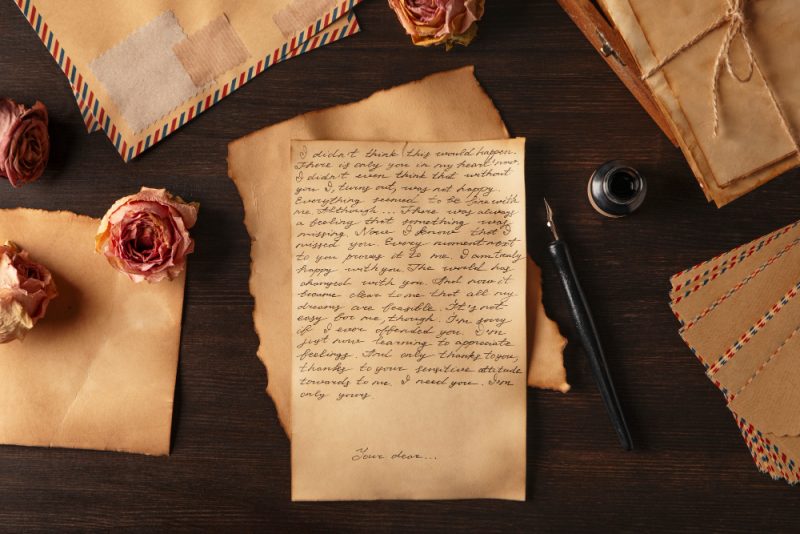 I didn't think this would happen.
There is only you in my heart now.
I didn't even think that without
you I, turns out, was not happy.
Everything seemed to be fine with
me. Although... There was always
a feeling that something was
missing. Now I know that I
missed you. Every moment next
to you proves it to me. I am truly
happy with you. The world has
changed with you. And now it
became clear to me that all my
dreams are feasible. It's not
easy for me, though. I'm sorry
if I ever offended you. I'm
just now learning to appreciate
feelings. And only thanks to you,
thanks to your sensitive attitude
towards to me. I need you. I'm
only yours.
Your dear...